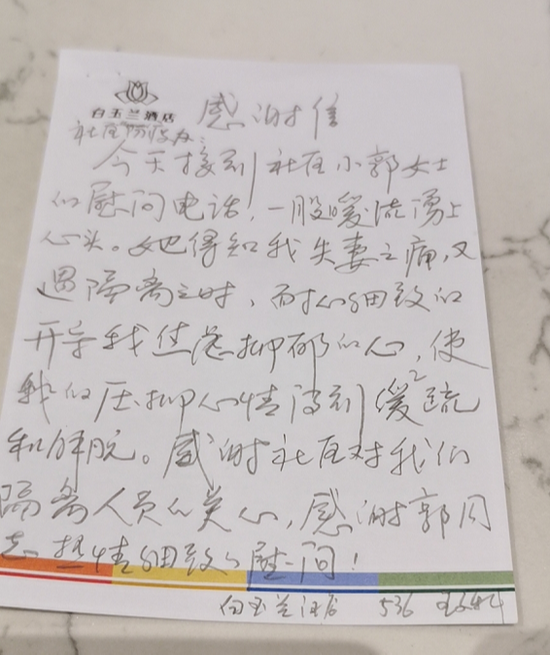 白玉兰酒店
感谢信
社区防疫办：
今天接到社区小郭女士
的慰问电话，一股暖流涌上
心头。她得知我失妻之痛，又
遇隔离之时，而耐心细致的
开导我焦虑抑郁的心，使
我的压抑心情得到缓疏
和解脱。感谢社区对我们
隔离人员的关心，感谢郭同
志热情细致的慰问！
白玉兰酒店 536